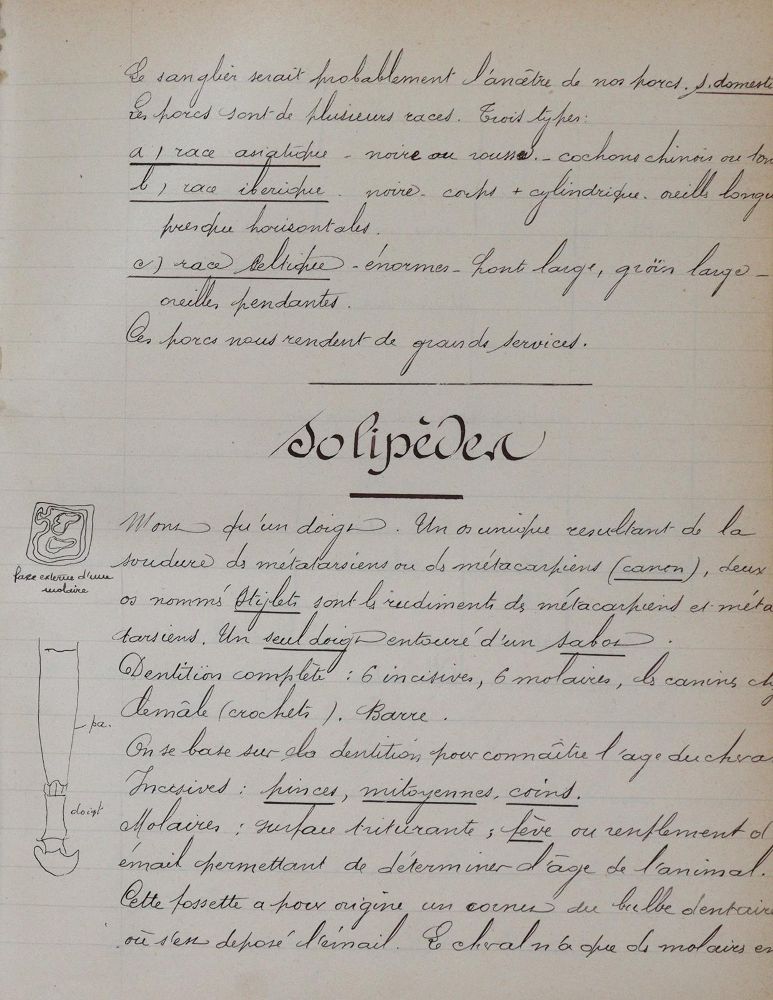 Le sanglier serait probablement l'ancêtre de nos porcs. s. domesti
Les porcs sont de plusieurs races. Trois types:
a) race asiatique - noire ou rousse. - cochons chinois ou ton
b) race iberique. noire - corps + cylindrique. oreills longu
presque horisontales.
c) race celtique - énormes - front large, groïn large -
oreilles pendantes.
Ces porcs nous rendent de grands services.
Solipèdes
Mons qu'un doigt. Un os unique resultant de la
soudure ds métatarsiens ou ds métacarpiens (canon), deux
os nommés stylets sont ls rudiments ds métacarpiens et méta
tarsiens. Un seul doigt entouré d'un sabot.
Dentition complète : 6 incisives, 6 molaires, ls canins ch
le mâle (crochets). Barre.
On se base sur la dentition pour connaître l'age du cheva
Incisives : pinces, mitoyennes, coins.
Molaires : surface triturante ; fève ou renflement d
émail permettant de déterminer l'âge de l'animal.
Cette fossette a pour origine un cornet du bulbe dentaire
où s'est deposé l'émail. Le cheval n'a que ds molairs en
face externe d'une
molaire
pa.
doigt